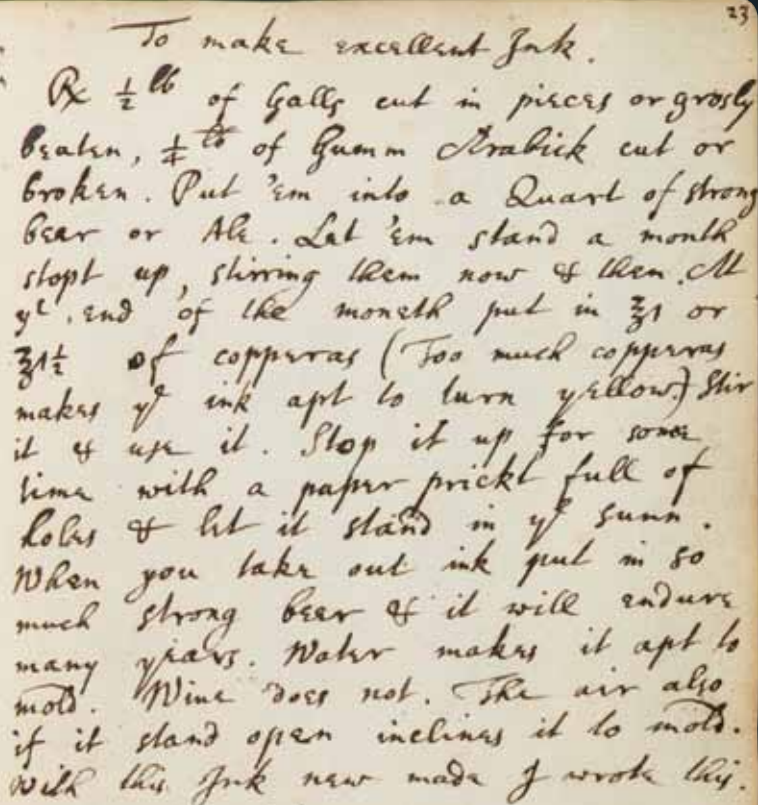 23
To make excellent Ink.
℞ ½ lb of Galls cut in pieces or grosly
beaten, ¼ lb of Gumm Arabick cut or
broken. Put 'em into a Quart of strong
bear or Ale. Let 'em stand a month
stopt up, stirring them now & then. At
yᵉ end of the moneth put in ℥1 or
℥1½ of copperas (Too much copperas
makes yᵉ ink apt to turn yellow.) Stir
it & use it. Stop it up for some
time with a paper prickt full of
holes & let it stand in yᵉ sunn.
When you take out ink put in so
much strong beer & it will endure
many years. Water makes it apt to
mold. Wine does not. The air also
if it stand open inclines it to mold.
With this Ink new made I wrote this.